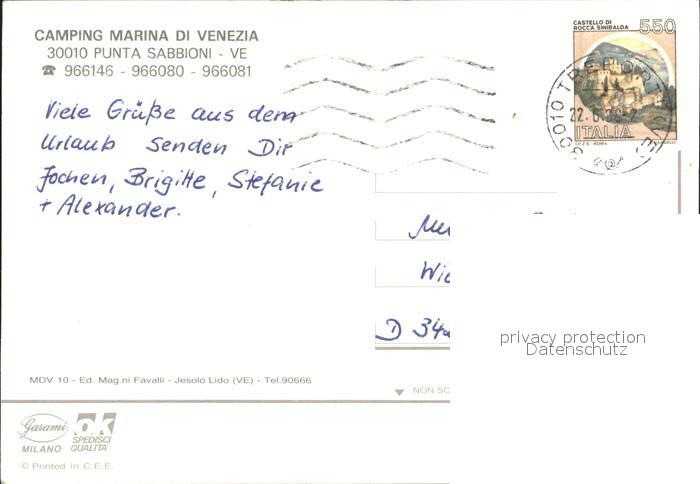 CAMPING MARINA DI VENEZIA
30010 PUNTA SABBIONI - VE
☎ 966146 - 966080 - 966081
Viele Grüße aus dem
Urlaub senden Dir
Jochen, Brigitte, Stefanie
+ Alexander.
CASTELLO DI
ROCCA SINIBALDA
550
ITALIA
I.P.Z.S. - ROMA
30010 TRE
VE
22.
Wie
D 34
privacy protection
Datenschutz
MDV 10 - Ed. Mag.ni Favalli - Jesolo Lido (VE) - Tel.90666
NON SC
Garami
MILANO
ok
SPEDISCI
QUALITA'
© Printed in C.E.E.